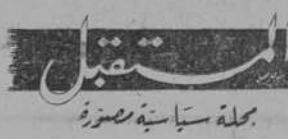 المستقبل
مجلة سياسية مصورة